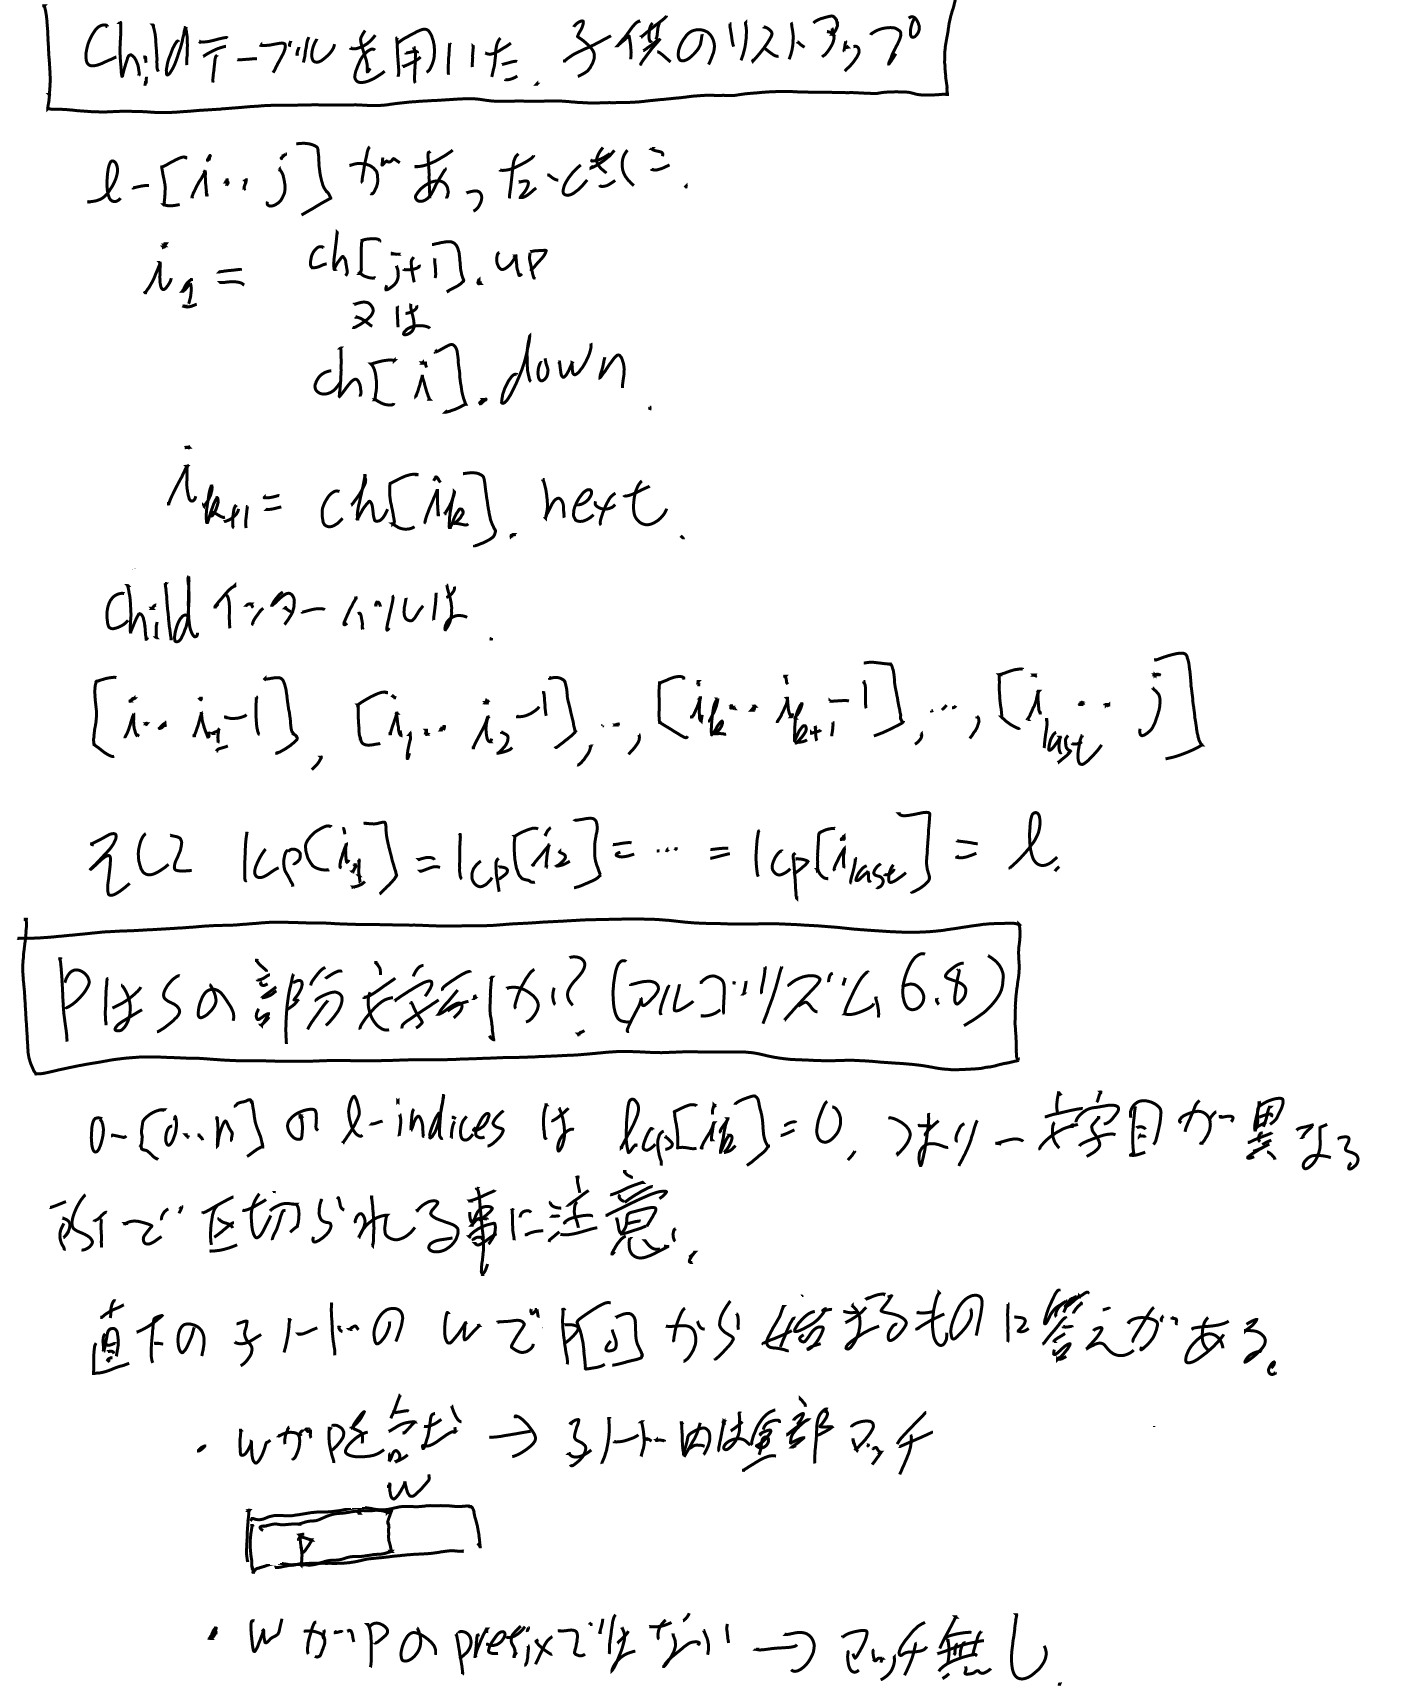 Childテーブルを用いた、子供のリストアップ
l-[i‥j]があったときに、
i₁ = ch[j+1].up
又は
ch[i].down.
i_{k+1} = ch[i_k].next.
Childインターバルは、
[i‥i₁-1], [i₁‥i₂-1],‥, [i_k‥i_{k+1}-1],…, [i_{last}‥j]
そして lcp[i₁] = lcp[i₂] = … = lcp[i_{last}] = l.
PはSの部分文字列か?(アルゴリズム6.8)
0-[0‥n]のl-indicesは lcp[i_k]=0、つまり一文字目が異なる
所で区切られる事に注意、
直下の子ノードのwでP[0]から始まるものに答えがある。
・wがPを含む → 子ノード内は全部マッチ
w
P
・wがPのprefixではない → マッチ無し.